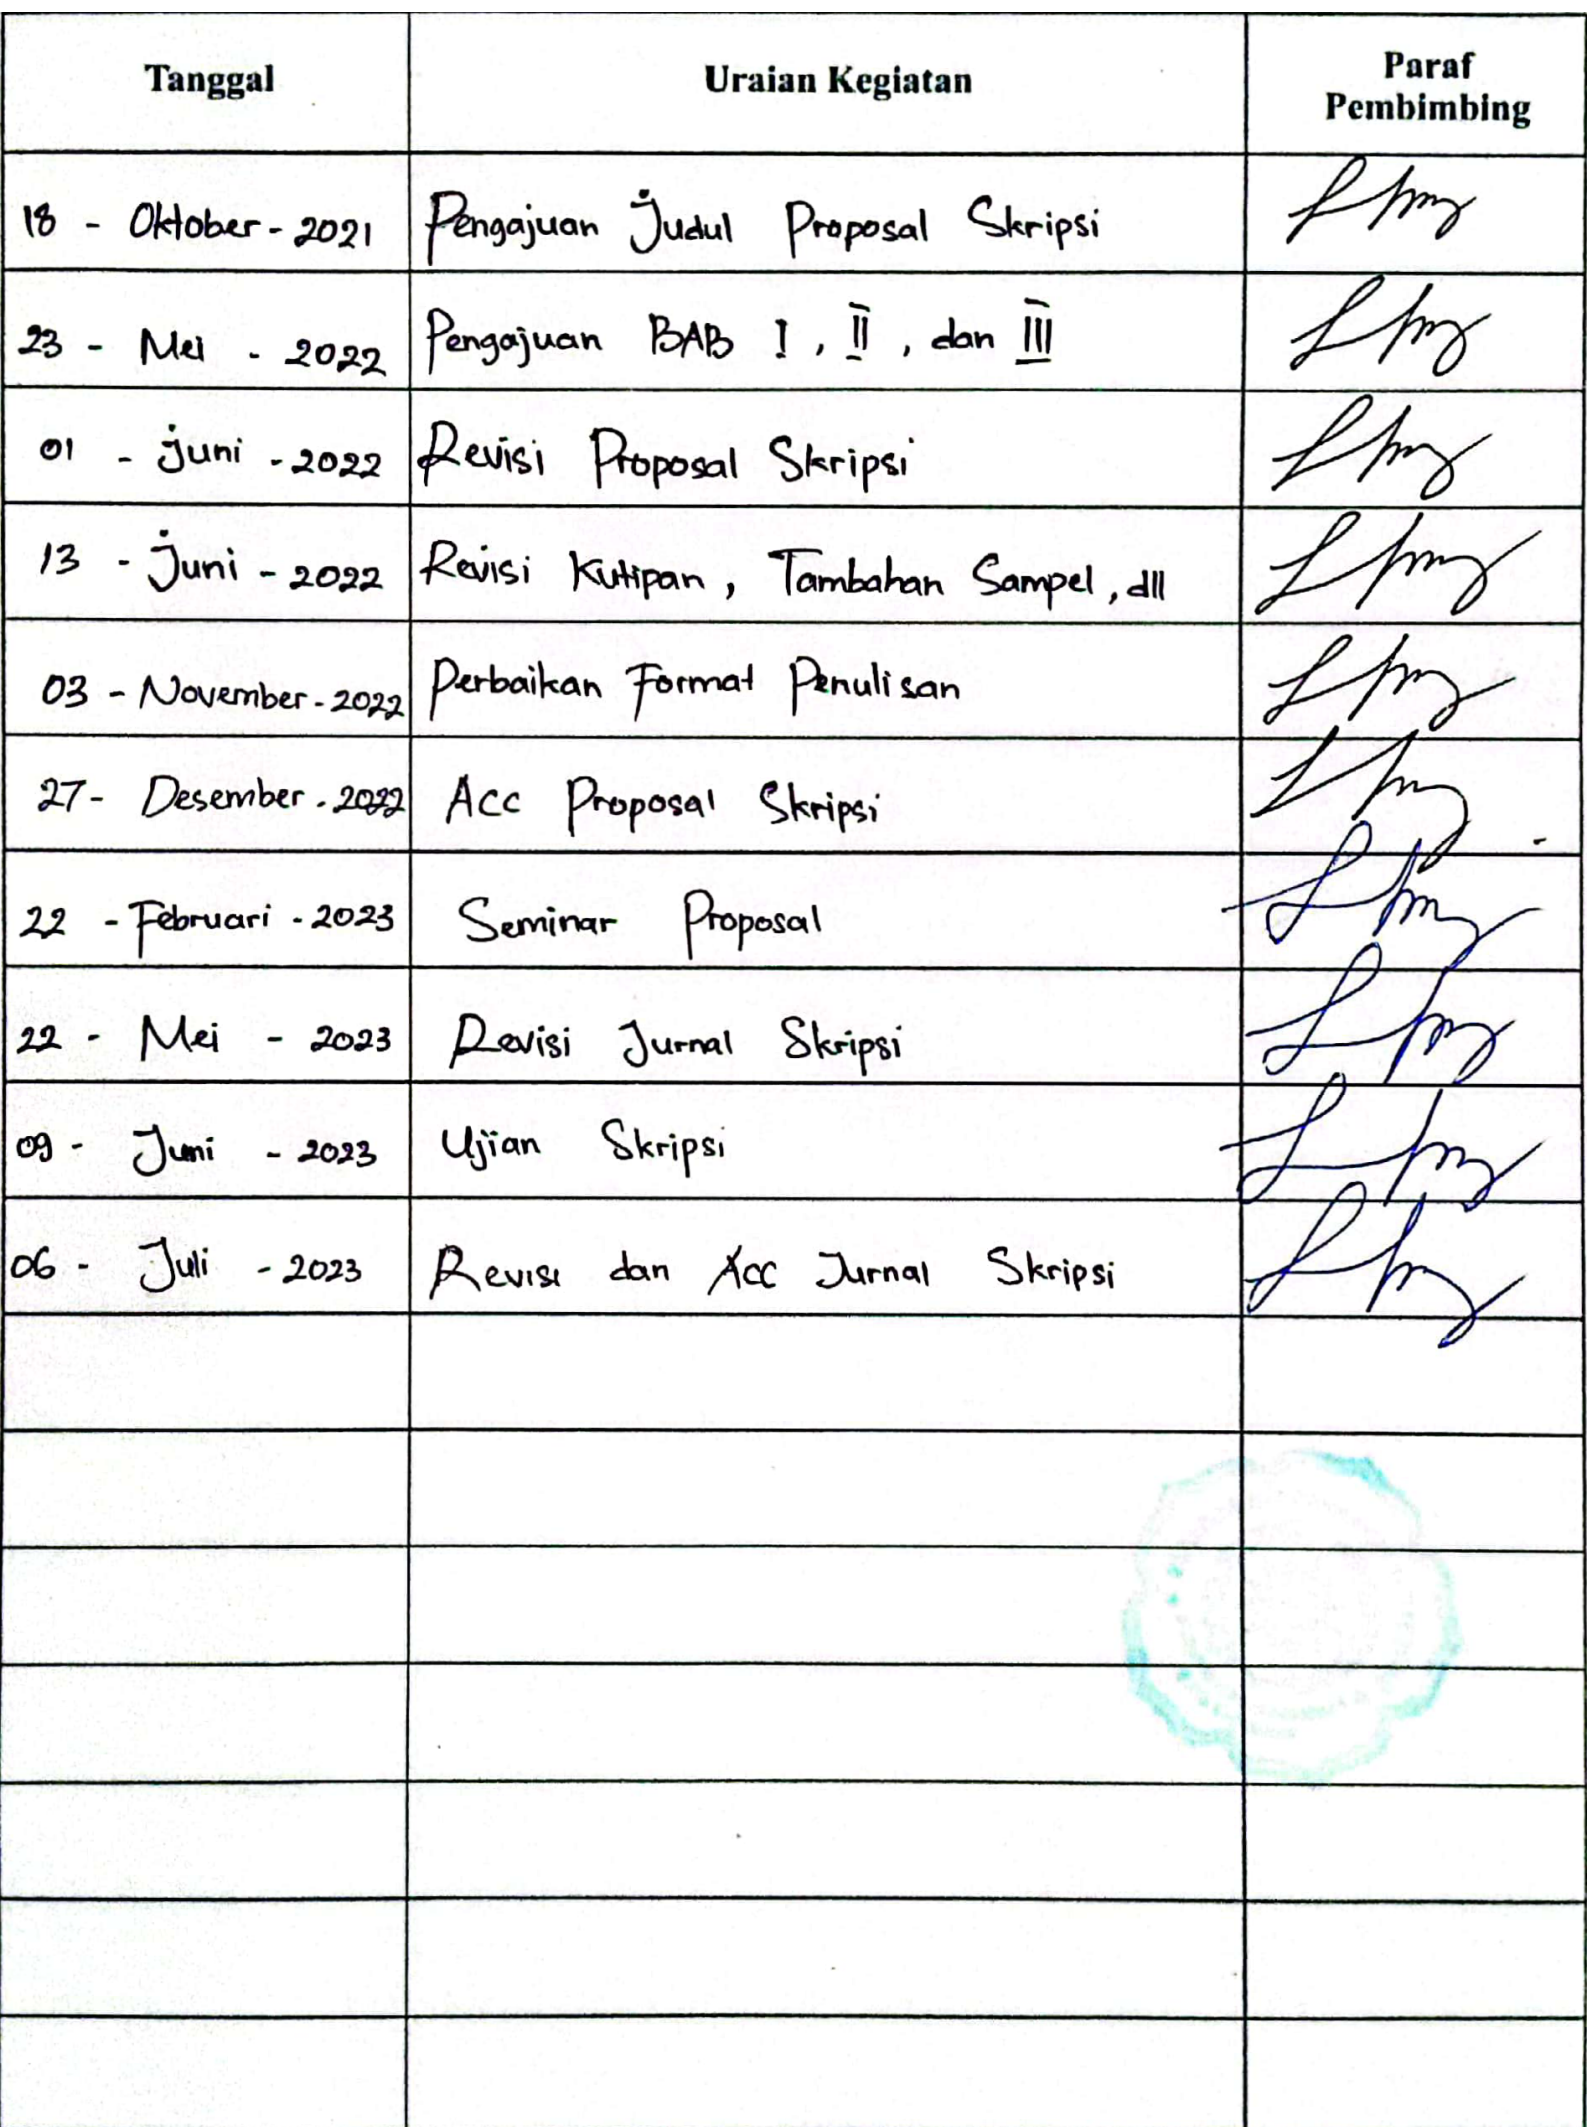 Tanggal Uraian Kegiatan Paraf
Pembimbing
18 - Oktober - 2021 Pengajuan Judul Proposal Skripsi
23 - Mei - 2022 Pengajuan BAB I, II, dan III
01 - Juni - 2022 Revisi Proposal Skripsi
13 - Juni - 2022 Revisi Kutipan, Tambahan Sampel, dll
03 - November - 2022 Perbaikan Format Penulisan
27 - Desember - 2022 Acc Proposal Skripsi
22 - Februari - 2023 Seminar Proposal
22 - Mei - 2023 Revisi Jurnal Skripsi
09 - Juni - 2023 Ujian Skripsi
06 - Juli - 2023 Revisi dan Acc Jurnal Skripsi